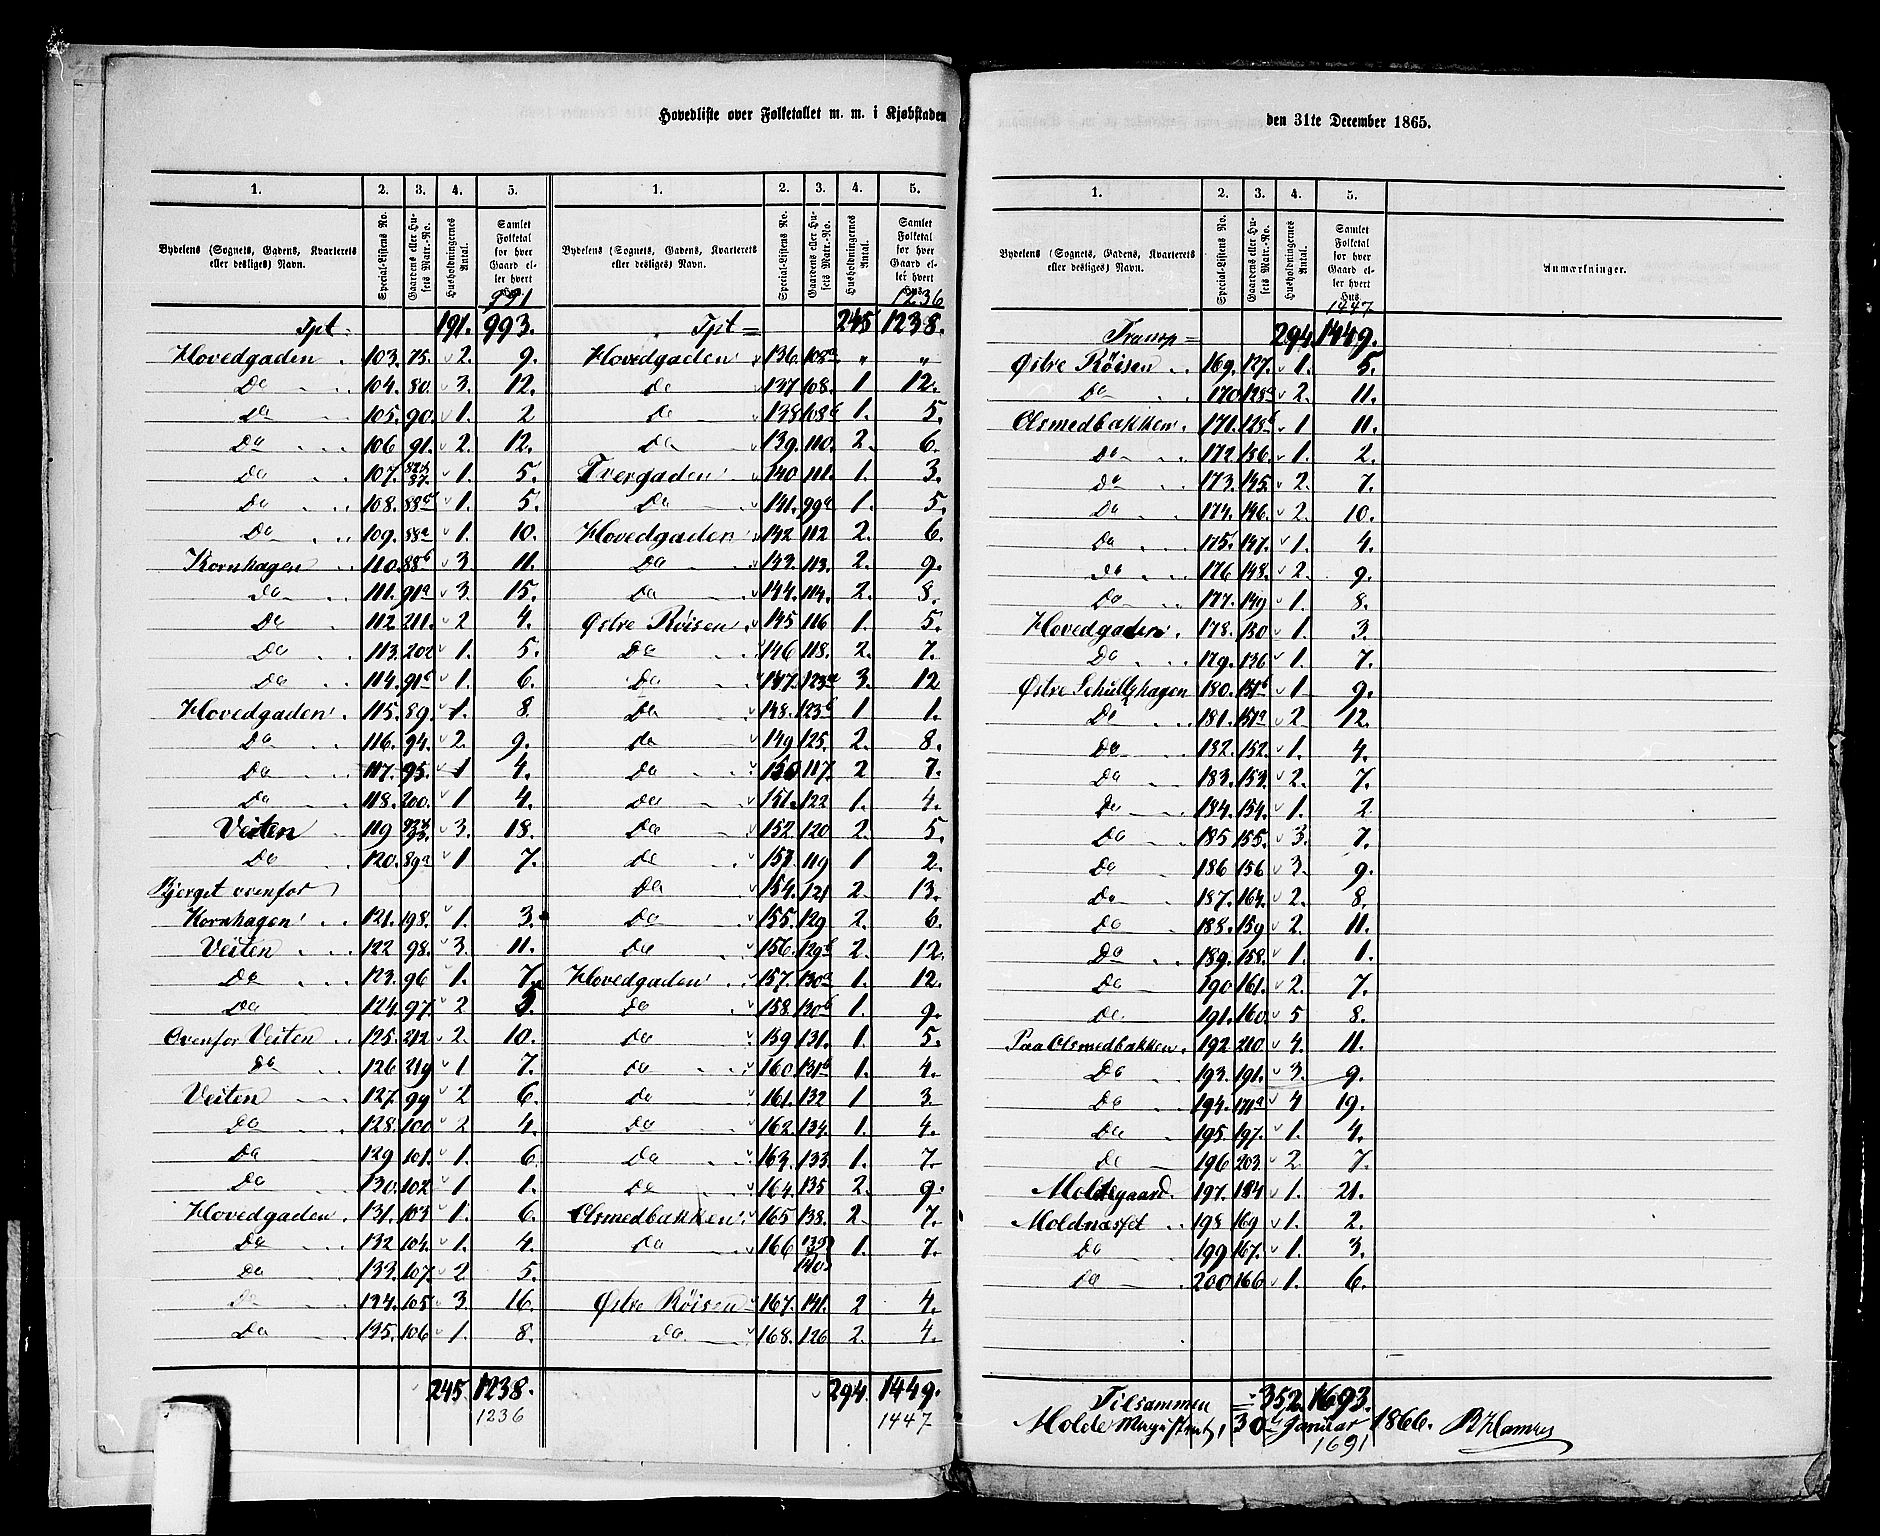 Hovedliste over Folketallet m. m. i Kjøbstaden
1. 2. 3. 4. 5. 1. 2. 3. 4. 5.
Bydelens (Sognets, Gadens, Kvarterets eller desliges) Navn. Special-Listens No. Gaardens eller Husets Matr.-No. Husholdningernes Antal. Samlet Folketal for hver Gaard eller hvert Hus. Bydelens (Sognets, Gadens, Kvarterets eller desliges) Navn. Special-Listens No. Gaardens eller Husets Matr.-No. Husholdningernes Antal. Samlet Folketal for hver Gaard eller hvert Hus.
991 1236
Tpt = 191. 993. Tpt = 245 1238.
Hovedgaden 103. 75. 2. 9. Hovedgaden 136. 108a „ „
Do 104. 80. 3. 12. Do 137. 108. 1 12.
Do 105. 90. 1. 2 Do 138. 108b 1. 5.
Do 106 91. 2. 12. Do 139. 110. 2. 6.
Do 107. 1. 5. Tvergaden 140 111. 1. 3.
Do 108. 1. 5. Do 141. 99a 1. 5.
Do 109. 88a 1. 10. Hovedgaden 142 112 2. 6.
Kornhagen 110. 88b 3 11. Do 143. 113. 2. 9.
Do 111. 91a 3. 15. Do 144. 114. 2. 8.
Do 112 211. 2 4. Østre Røisen 145 116 1. 5.
Do 113. 202 1. 5. Do 146 118. 2. 7.
Do 114. 91b 1. 6. Do 147. 123a 3. 12
Hovedgaden 115. 89. 1. 8. Do 148. 123b 1 1.
Do 116. 94. 2. 9. Do 149 125. 2. 8.
Do 117. 95. 1 4. Do 150 117. 2 7.
Do 118. 200. 1 4. Do 151. 122 1. 4.
Veiten 119 3. 18. Do 152. 120 2. 5.
Do 120. 89a 1 7. Do 153. 119 1 2.
Bjerget ovenfor Do 154. 121 2. 13.
Kornhagen 121. 198. 1. 3. Do 155. 129 2. 6.
Veiten 122 98. 3. 11. Do 156. 129b 2. 12.
Do 123. 96 1. 7. Hovedgaden 157. 130a 1. 12.
Do 124. 97. 2 5. Do 158. 130b 1. 9.
Ovenfor Veiten 125. 212 2. 10. Do 159 131. 1. 5.
Do 126 219 1 7. Do 160 131b 1. 4.
Veiten 127. 99 2 6. Do 161. 132 1 3.
Do 128. 100 2 4. Do 162. 134. 1. 4.
Do 129 101. 1. 6. Do 163. 133. 1. 7.
Do 130. 102 1 1. Do 164. 135 2. 9.
Hovedgaden 131. 103 1. 6. Olsmedbakken 165 138. 2 7.
Do 132 104. 1. 4. Do 166 139 140. 1. 7.
Do 133. 107. 2 5.
Do 134. 105. 3. 16. Østre Røisen 167. 141. 2 4.
Do 135. 106 1. 8. Do 168. 126 2. 4.
245. 1238. 294. 1449.
1236 1447
den 31te December 1865.
1. 2. 3. 4. 5.
Bydelens (Sognets, Gadens, Kvarterets eller desliges) Navn. Special-Listens No. Gaardens eller Husets Matr.-No. Husholdningernes Antal. Samlet Folketal for hver Gaard eller hvert Hus Anmærkninger.
1447
Transp = 294 1449.
Østre Røisen 169. 127. 1. 5.
Do 170 128a 2 11.
Olsmedbakken 171. 128b 1 11.
Do 172. 1. 2.
Do 173. 145. 2. 7.
Do 174. 146. 2. 10.
Do 175. 147. 1. 4.
Do 176 148. 2. 9.
Do 177. 149 1. 8.
Hovedgaden 178. 150 1. 3.
Do 179. 136 1. 7.
Østre Schultzhagen 180. 151b 1 9.
Do 181. 151a 2 12.
Do 182. 152. 1. 4.
Do 183. 153. 2. 7.
Do 184. 154. 1. 2
Do 185 155. 3. 7.
Do 186 156 3. 9.
Do 187. 164. 2. 8.
Do 188. 159 2. 11.
Do 189. 158. 1. 1.
Do 190 161. 2. 7.
Do 191. 160. 5 8.
Paa Olsmedbakken 192 210 4. 11.
Do 193. 191. 3. 9.
Do 194. 171a 4 19.
Do 195 197. 1. 4.
Do 196 203. 2. 7.
Moldegaard 197. 184 1. 21.
Moldnæsset 198 169 1. 2.
Do 199 167. 1. 3.
Do 200 166 1. 6.
Tilsammen = 352. 1693.
Molde Magistrat, 30te Januar 1866.
1691